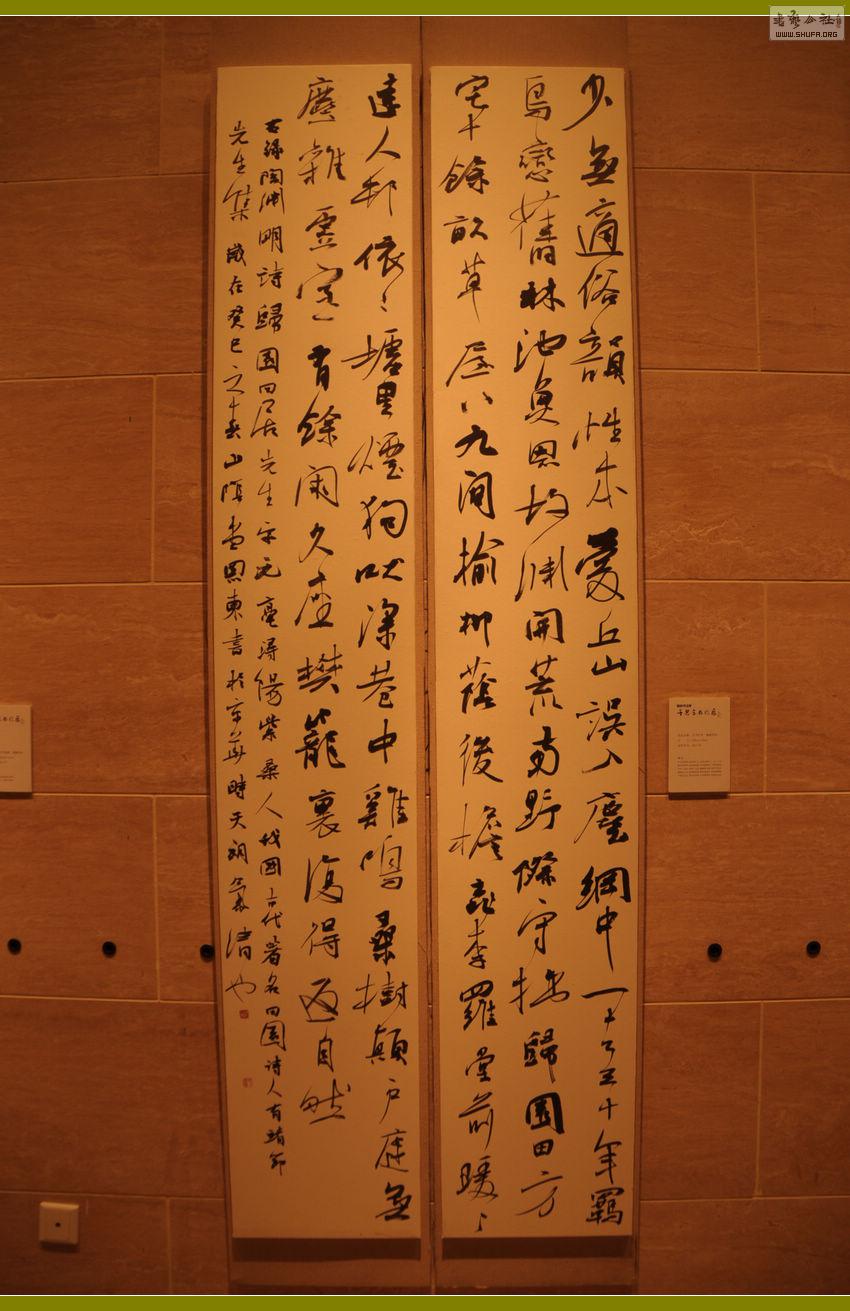 書藝公社
WWW.SHUFA.ORG
少無適俗韻性本愛丘山誤入塵網中一去三十年羈
鳥戀舊林池魚思故淵開荒南野際守拙歸園田方
宅十餘畝草屋八九間榆柳蔭後檐桃李羅堂前曖々
遠人邨依々墟里煙狗吠深巷中雞鳴桑樹顛戶庭無
塵雜虛室有餘閑久在樊籠裏復得返自然
右錄陶淵明詩歸園田居先生字元亮潯陽柴桑人我國古代著名田園詩人有靖節
先生集 歲在癸巳之春山陰思東書於京華時天朗氣清也